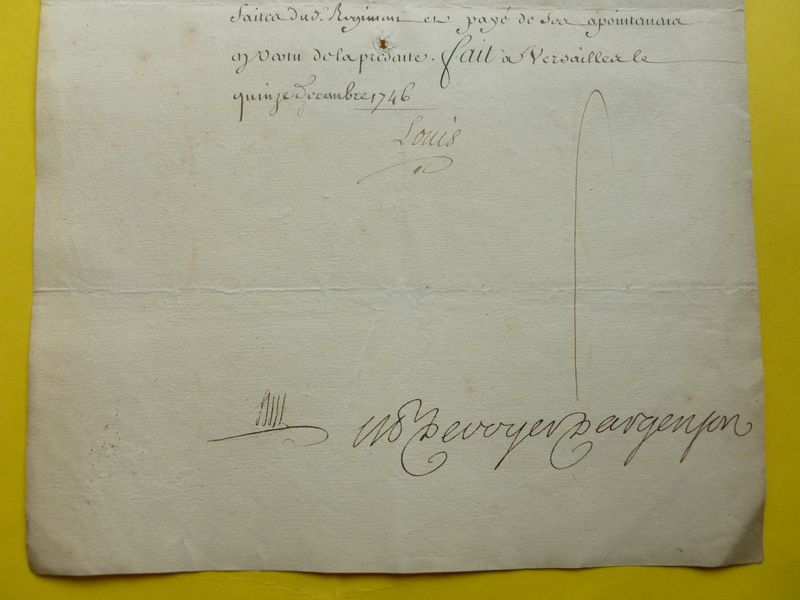 faites dud. Regiment et payé de ses apointemens
en vertu de la presente. fait a Versailles le
quinze Decembre 1746
Louis
M P De voyer Dargenson